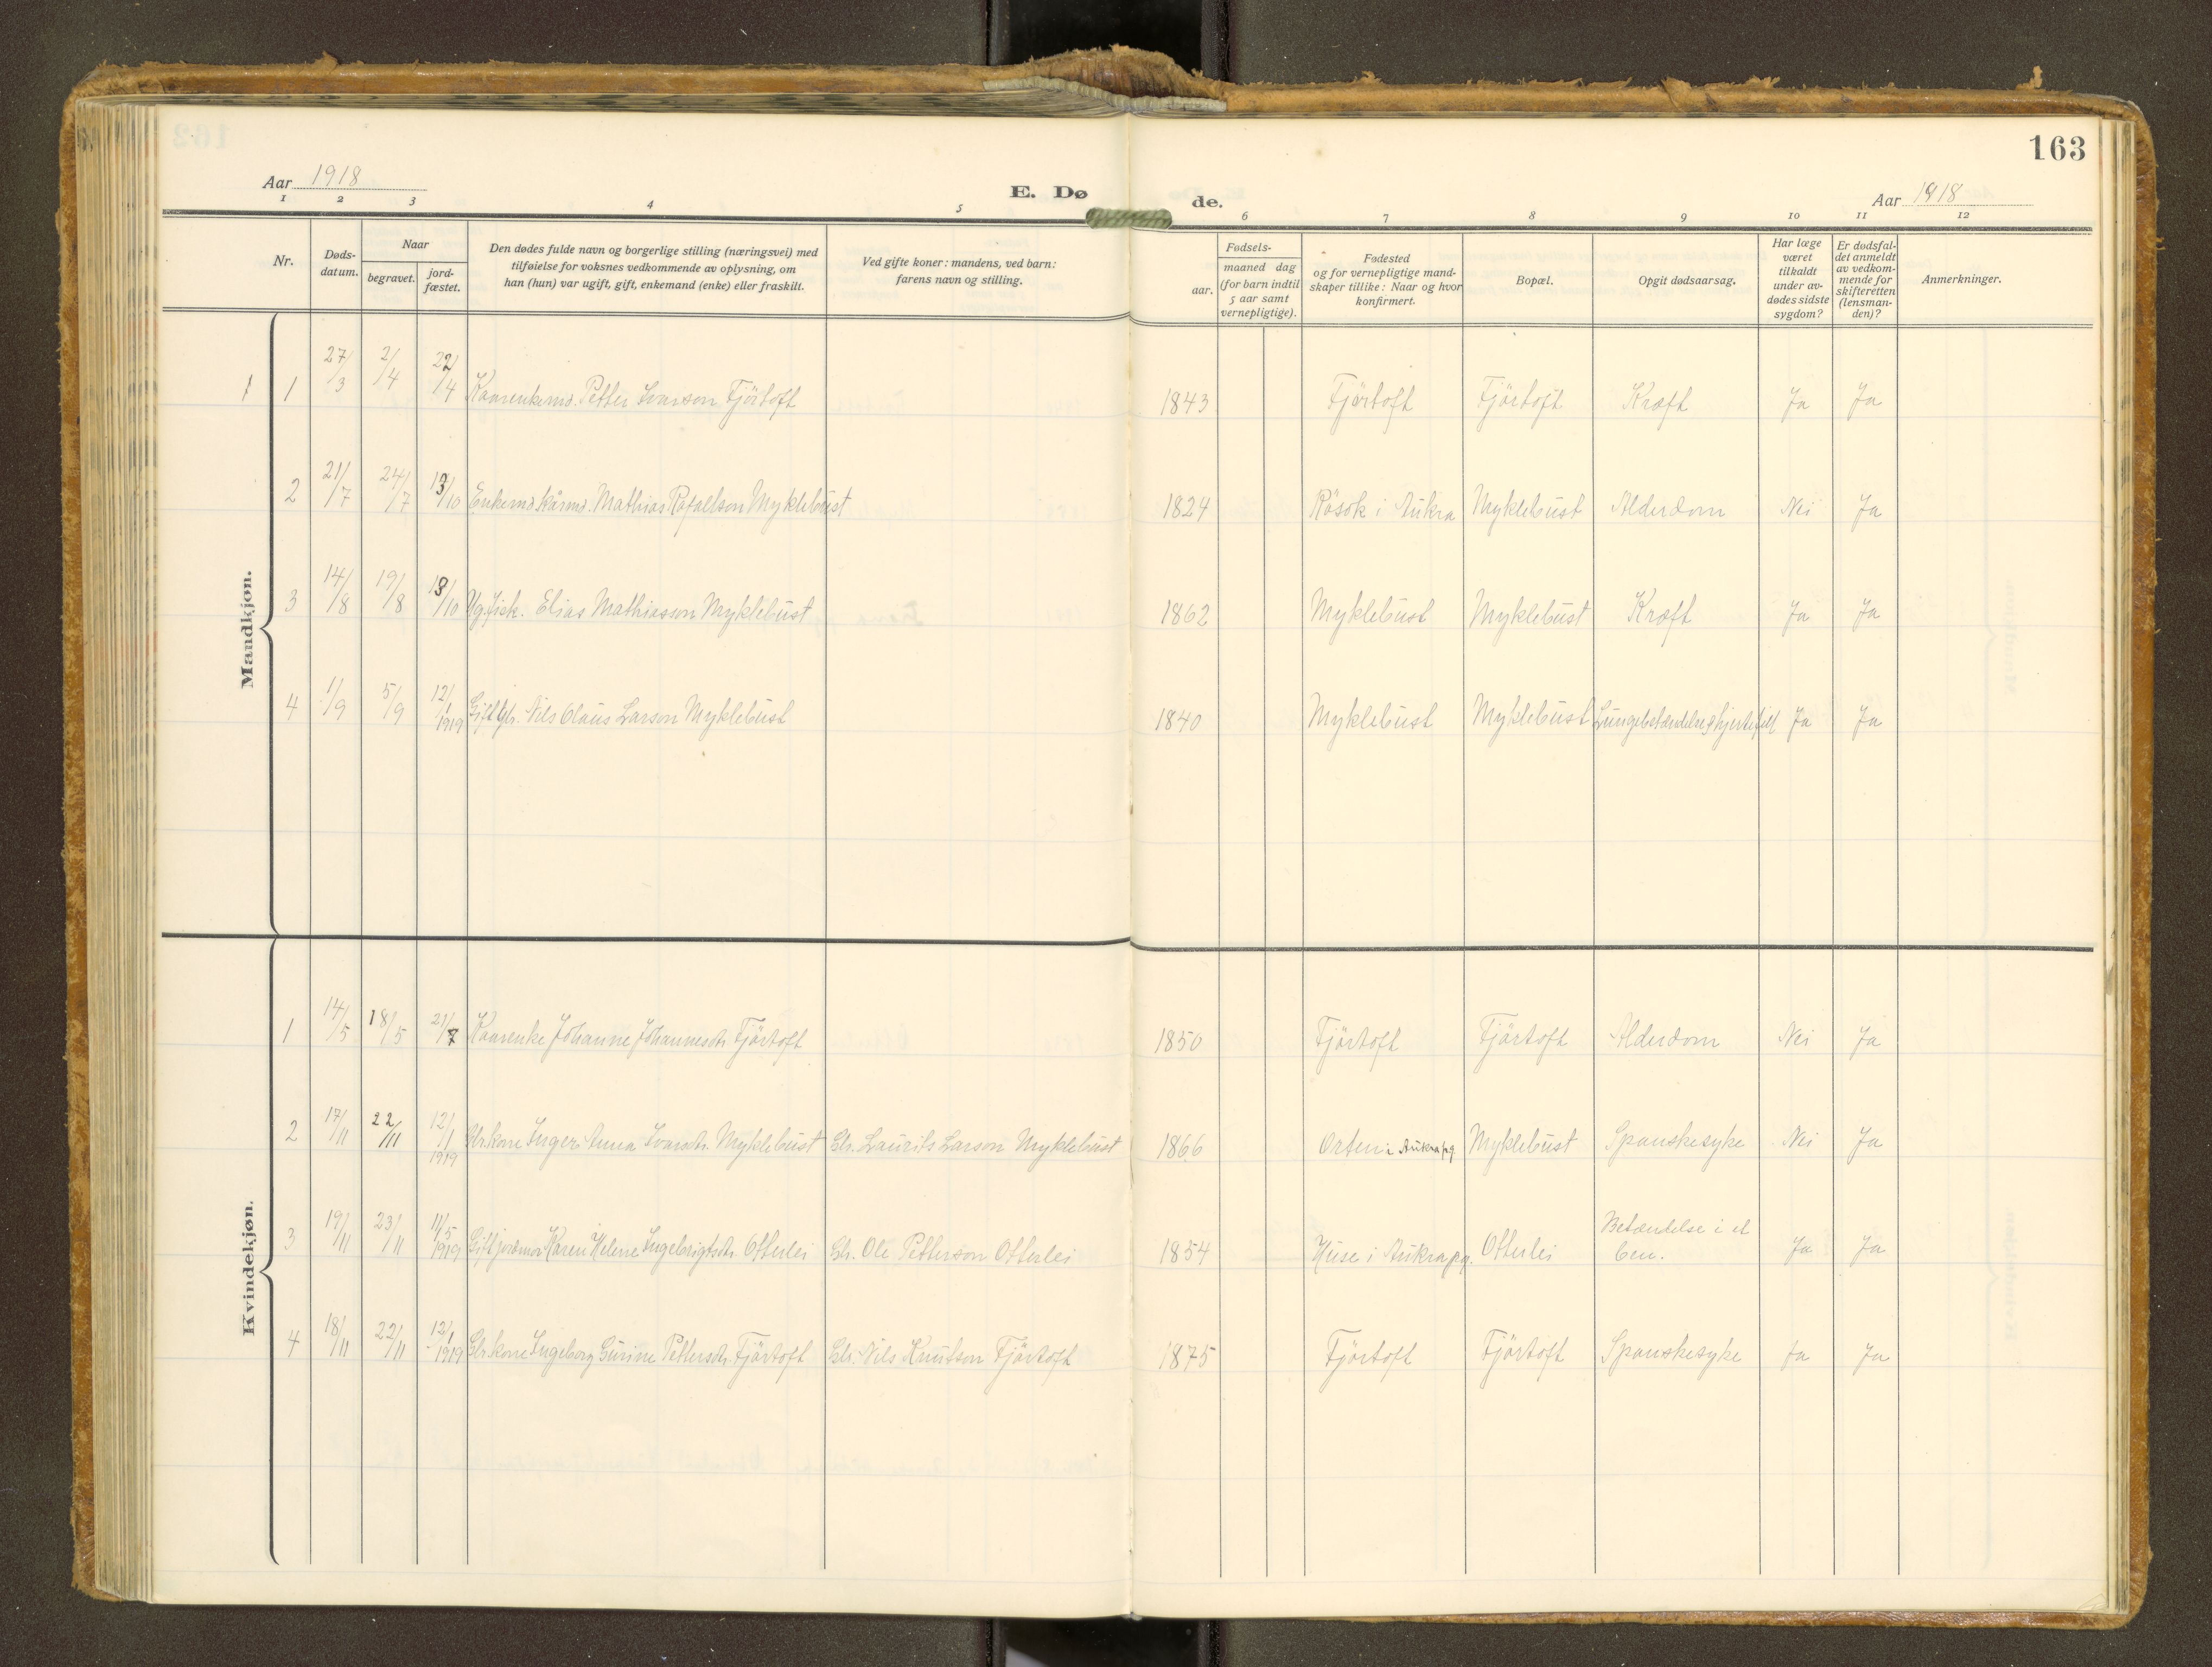 163
Aar 1918
E. Dø
de.
Aar 1918
1 2 3 4 5 6 7 8 9 10 11 12
Nr.
Døds-
datum.
Naar
begravet.
jord-
fæstet.
Den dødes fulde navn og borgerlige stilling (næringsvei) med
tilføielse for voksnes vedkommende av oplysning, om
han (hun) var ugift, gift, enkemand (enke) eller fraskilt.
Ved gifte koner: mandens, ved barn:
farens navn og stilling.
Fødsels-
aar.
maaned dag
(for barn indtil
5 aar samt
vernepligtige).
Fødested
og for vernepligtige mand-
skaper tillike: Naar og hvor
konfirmert.
Bopæl.
Opgit dødsaarsag.
Har læge
været
tilkaldt
under av-
dødes sidste
sygdom?
Er dødsfal-
det anmeldt
av vedkom-
mende for
skifteretten
(lensman-
den)?
Anmerkninger.
Mandkjøn.
1 1 27/3 2/4 22/4 Kaarenkemd. Petter Ivarson Fjörtoft 1843 Fjörtoft Fjörtoft Kræft Ja Ja
2 21/7 24/7 13/10 Enkemd kårmd. Mathias Rafaelson Myklebust 1824 Rösok i Aukra Myklebust Alderdom Nei Ja
3 14/8 19/8 13/10 Ug. fisk. Elias Mathiasson Myklebust 1862 Myklebust Myklebust Kræft Ja Ja
4 1/9 5/9 12/1 1919 Gift Gbr. Nils Olaus Larson Myklebust 1840 Myklebust Myklebust Lungebetændelse & hjertefeil Ja Ja
Kvindekjøn.
1 14/5 18/5 21/7 Kaarenke Johanne Johannesdtr. Fjörtoft 1850 Fjörtoft Fjörtoft Alderdom Nei Ja
2 17/11 22/11 12/1 1919 Gbr.kone Inger Anna Ivarsdtr. Myklebust Gbr. Laurits Larson Myklebust 1866 Orten i Aukra pg. Myklebust Spanskesyke Nei Ja
3 19/11 23/11 11/5 1919 Gift jordmor Karen Helene Ingebrigtsdtr. Otterlei Gbr. Ole Petterson Otterlei 1854 Huse i Aukra pg. Otterlei Betændelse i et
ben. Ja Ja
4 18/11 22/11 12/1 1919 Gbr.kone Ingeborg Gurine Pettersdtr. Fjörtoft Gbr. Nils Knutson Fjörtoft 1875 Fjörtoft Fjörtoft Spanskesyke Ja Ja